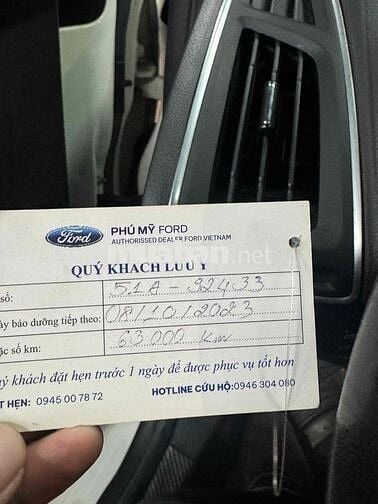 Ford
PHÚ MỸ FORD
AUTHORISSED DEALER FORD VIETNAM
muaban.net
QUÝ KHÁCH LƯU Ý
số: 51A-92433
ày bảo dưỡng tiếp theo: 08/10/2023
ặc số km: 63000 Km
ý khách đặt hẹn trước 1 ngày để được phục vụ tốt hơn
ẶT HẸN: 0945 00 78 72 HOTLINE CỨU HỘ:0946 304 080